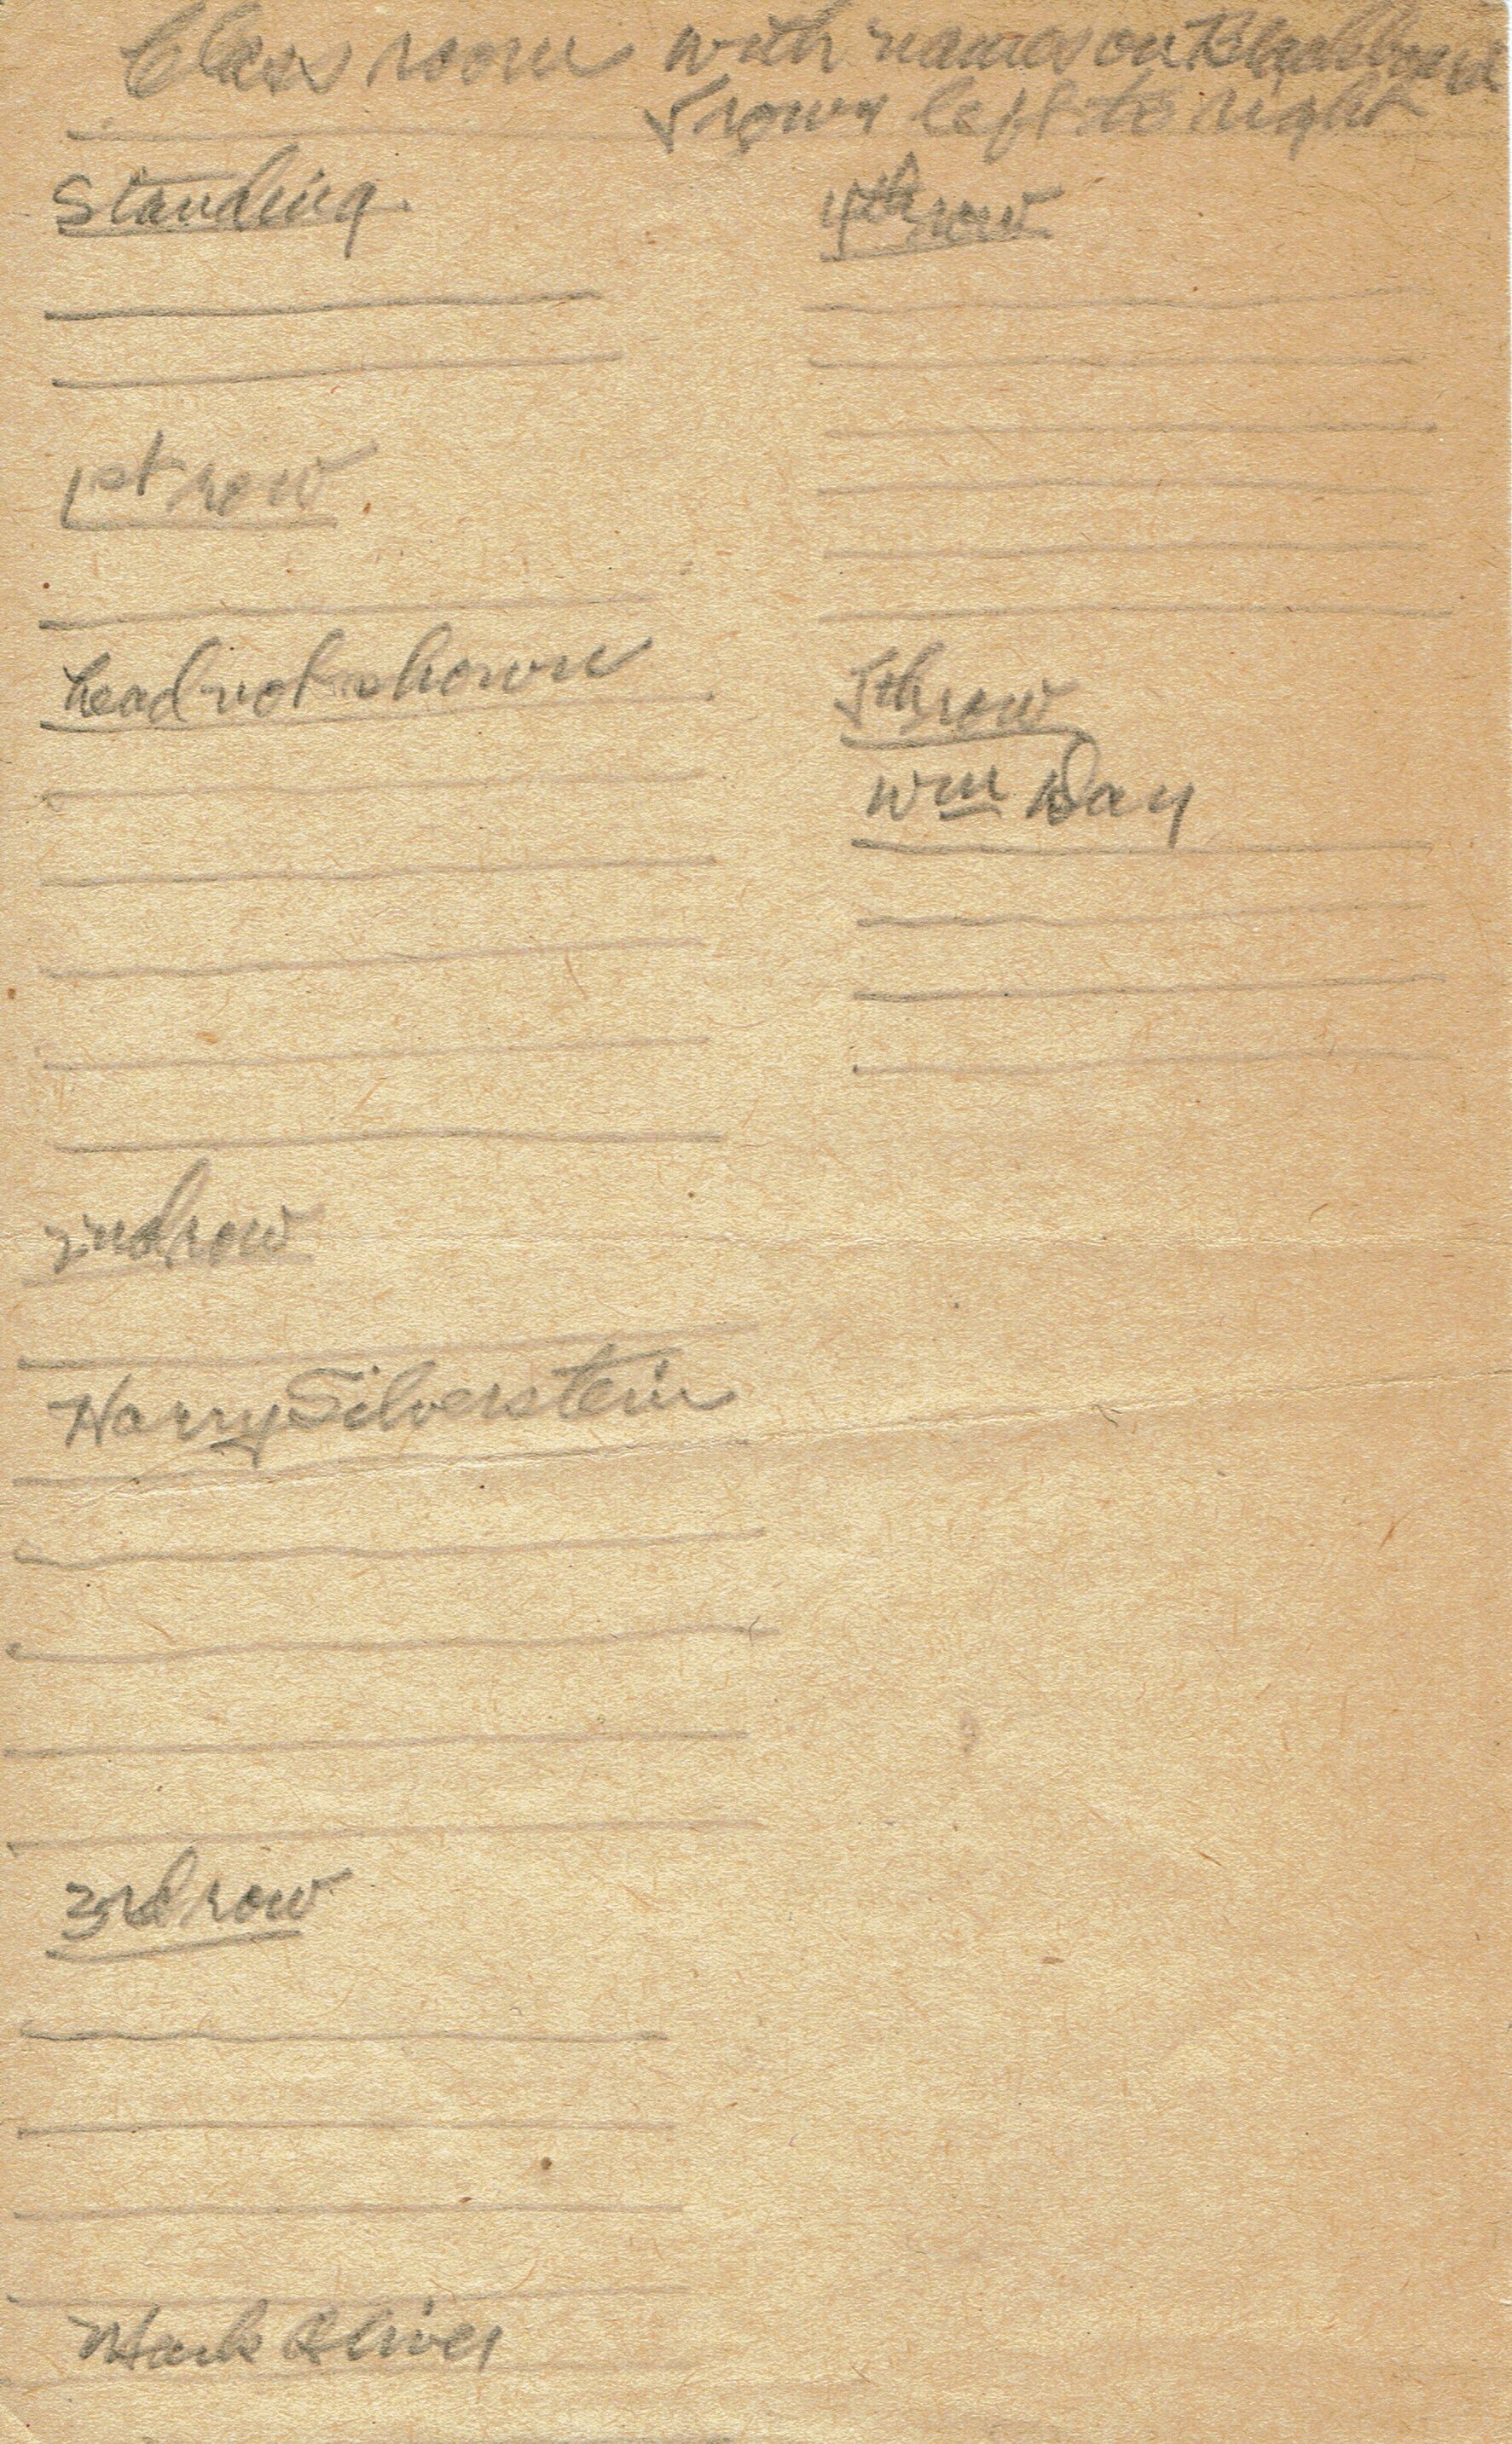 Class room with names on Blackboard
5 rows left to right
Standing
1st row
head not shown
2nd row
Harry Silverstein
3rd row
Mark Oliver
4th row
5th row
Wm Day